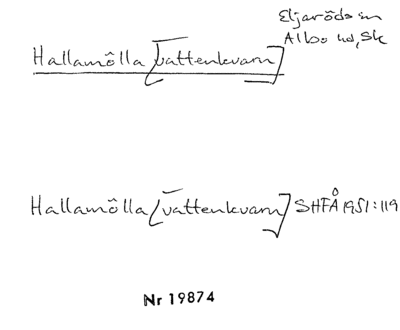 Eljaröds sn
Albo hd, Sk
Hallamölla [vattenkvarn]
Hallamölla [vattenkvarn] SHFÅ 1951:119
Nr 19874